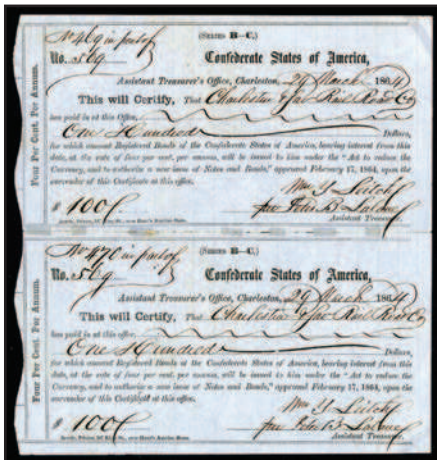 No 469 in part of
(SERIES B—C.)
No. 509.
Confederate States of America,
Assistant Treasurer's Office, Charleston, 29 March 1864
This will Certify, That Charleston & Sav Rail Road Co
has paid in at this office,
One Hundred Dollars,
for which amount Registered Bonds of the Confederate States of America, bearing interest from this
date, at the rate of four per cent. per annum, will be issued to him under the "Act to reduce the
Currency, and to authorize a new issue of Notes and Bonds," approved February 17, 1864, upon the
surrender of this Certificate at this office.
Wm Y Leitch
$ 100
per Peter B
Assistant Treasurer.
Four Per Cent. Per Annum.
No 470 in part of
(SERIES B—C.)
No. 509
Confederate States of America,
Assistant Treasurer's Office, Charleston, 29 March 1864
This will Certify, That Charleston & Sav Rail Road Co
has paid in at this office,
One Hundred Dollars,
for which amount Registered Bonds of the Confederate States of America, bearing interest from this
date, at the rate of four per cent. per annum, will be issued to him under the "Act to reduce the
Currency, and to authorize a new issue of Notes and Bonds," approved February 17, 1864, upon the
surrender of this Certificate at this office.
Wm Y Leitch
$ 100
per Peter B
Assistant Treasurer.
Four Per Cent. Per Annum.